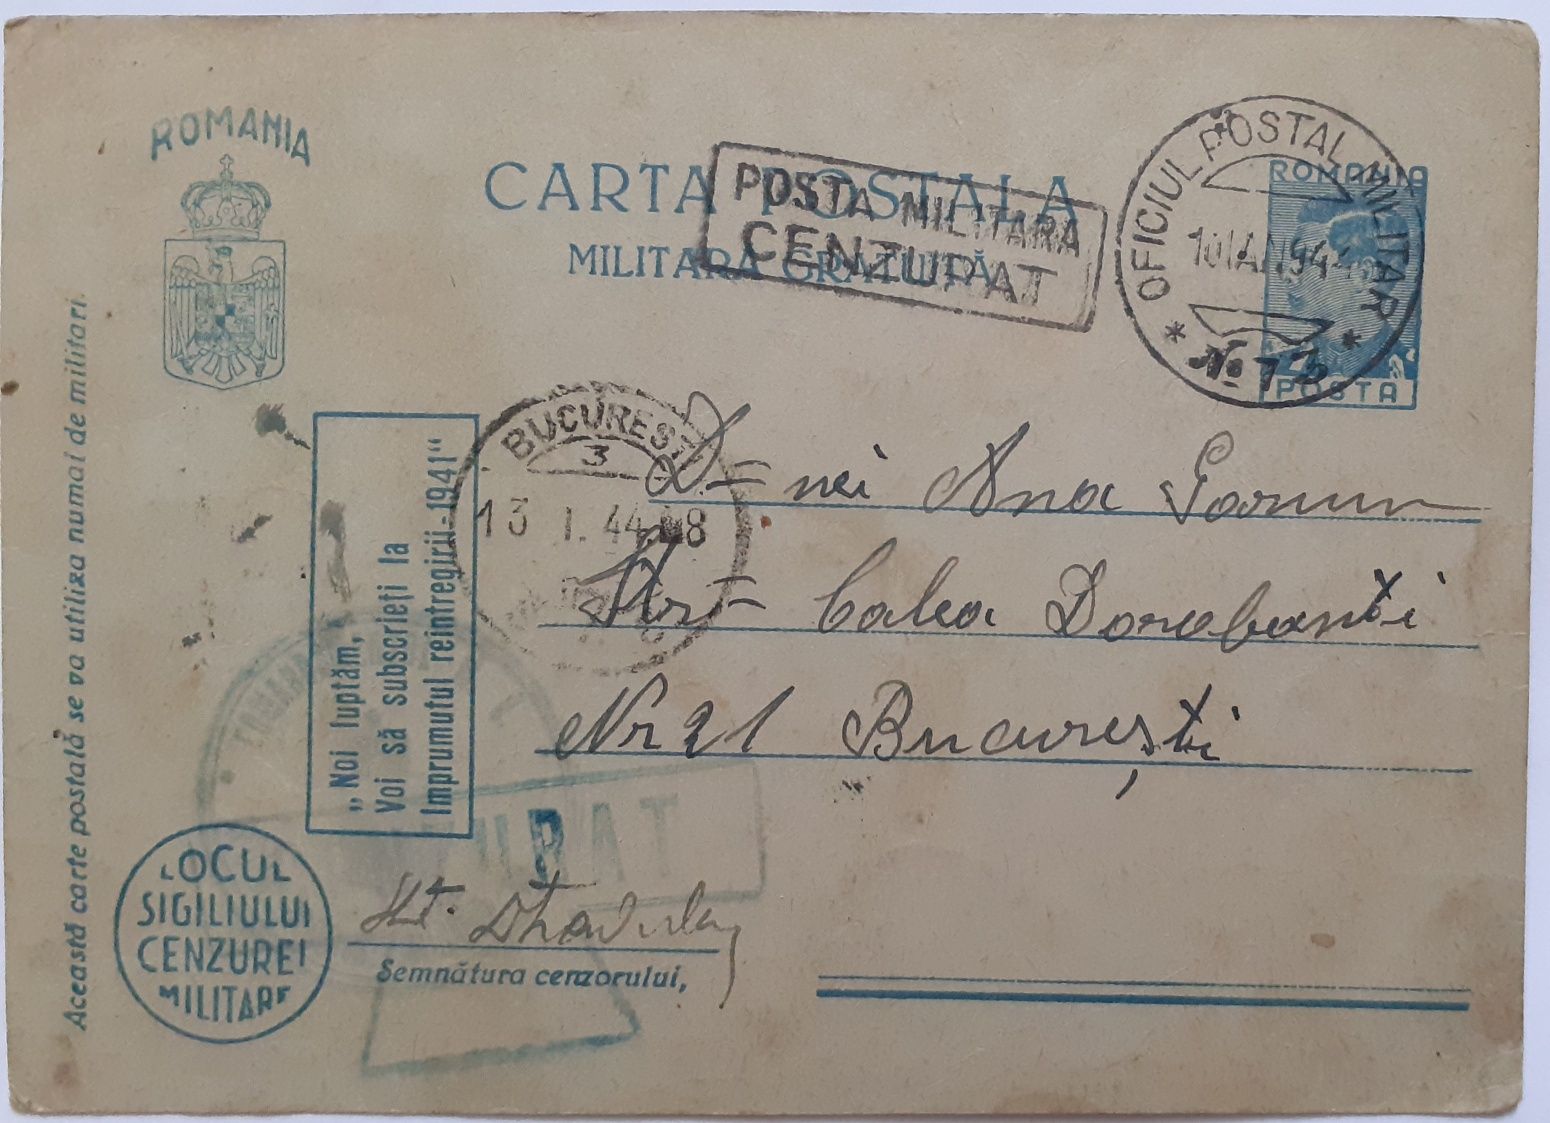 ROMANIA
CARTA POSTALA
MILITARA GRATUITA
POSTA MILITARA
CENZURAT
OFICIUL POSTAL MILITAR
10 IAN. 94
No
ROMANIA
POSTA
Această carte poștală se va utiliza numai de militari.
„Noi luptăm,
Voi să subscrieți la
Imprumutul reintregirii-1941"
BUCUREȘTI
3
13 I. 44 18
D-nei Ana
Str- Calea Dorobanți
Nr 21 București
LOCUL
SIGILIULUI
CENZUREI
MILITARE
URAT
Semnătura cenzorului,